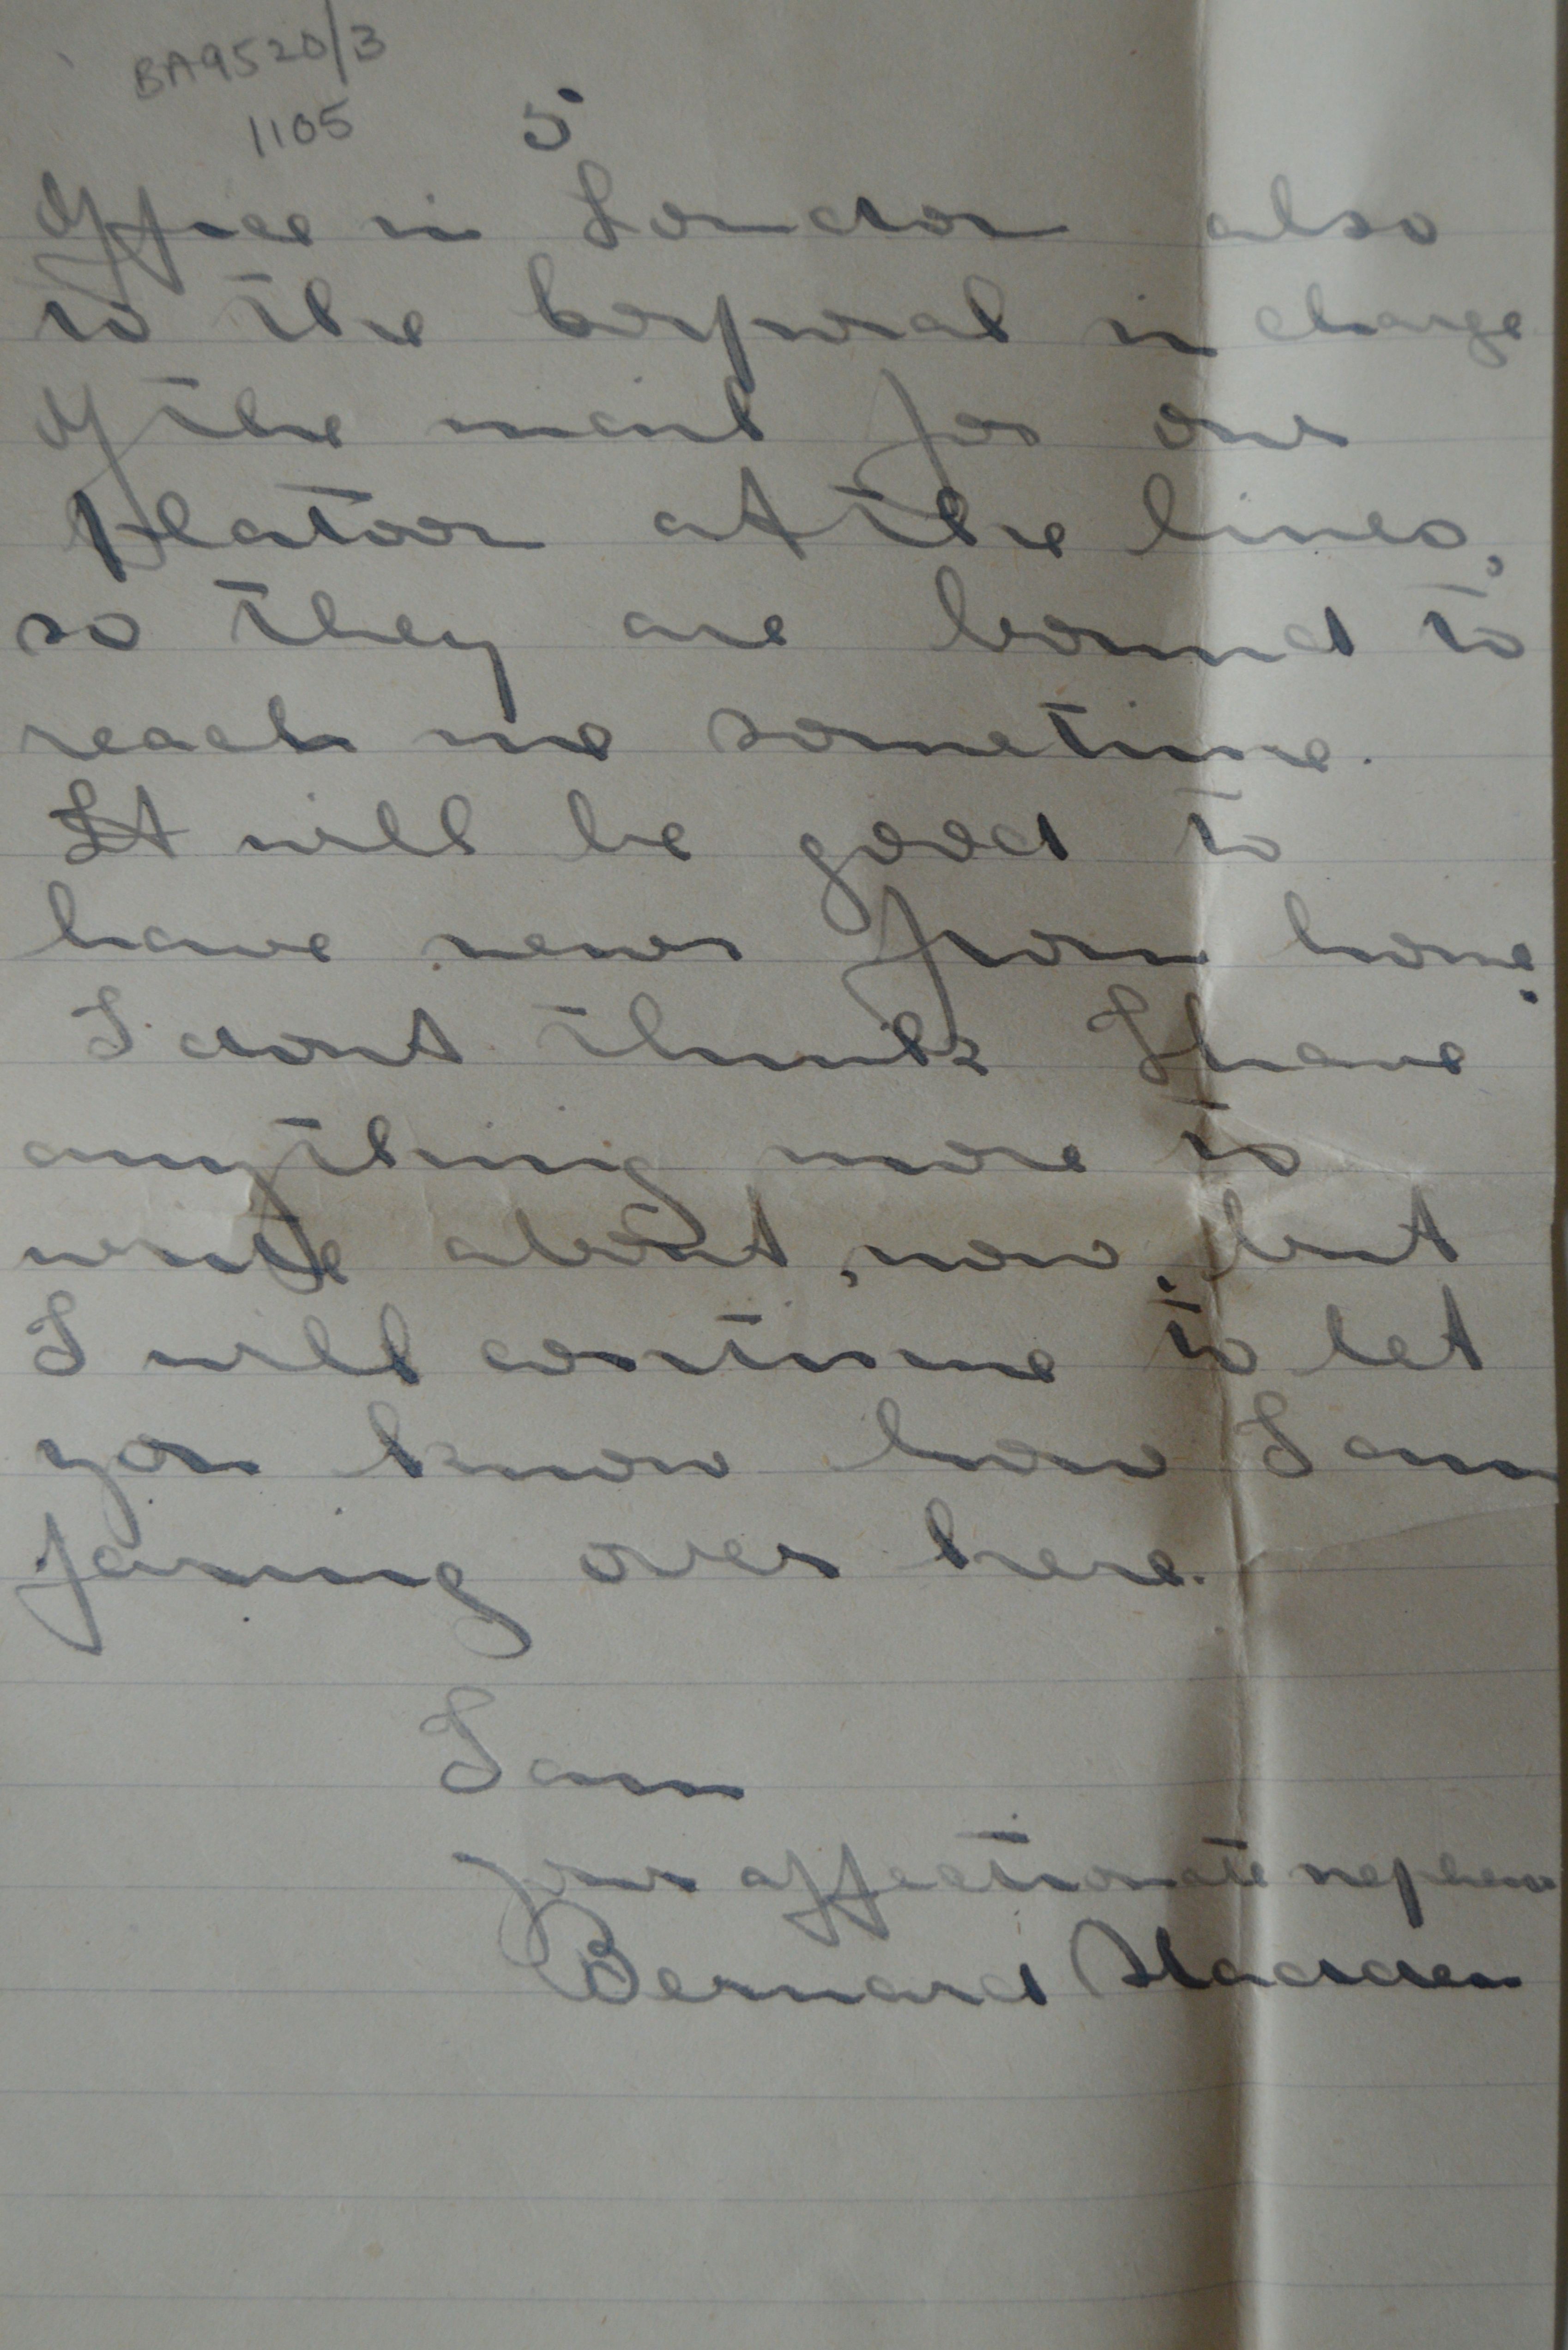 BA9520/3
1105
5
Office in London also
to the Corporal in charge
of the mail for our
platoon at the lines,
so they are bound to
reach me sometime.
It will be good to
have news from home.
I dont think I have
anything more to
write about, now, but
I will continue to let
you know how I am
faring over here.
I am
your affectionate nephew
Bernard